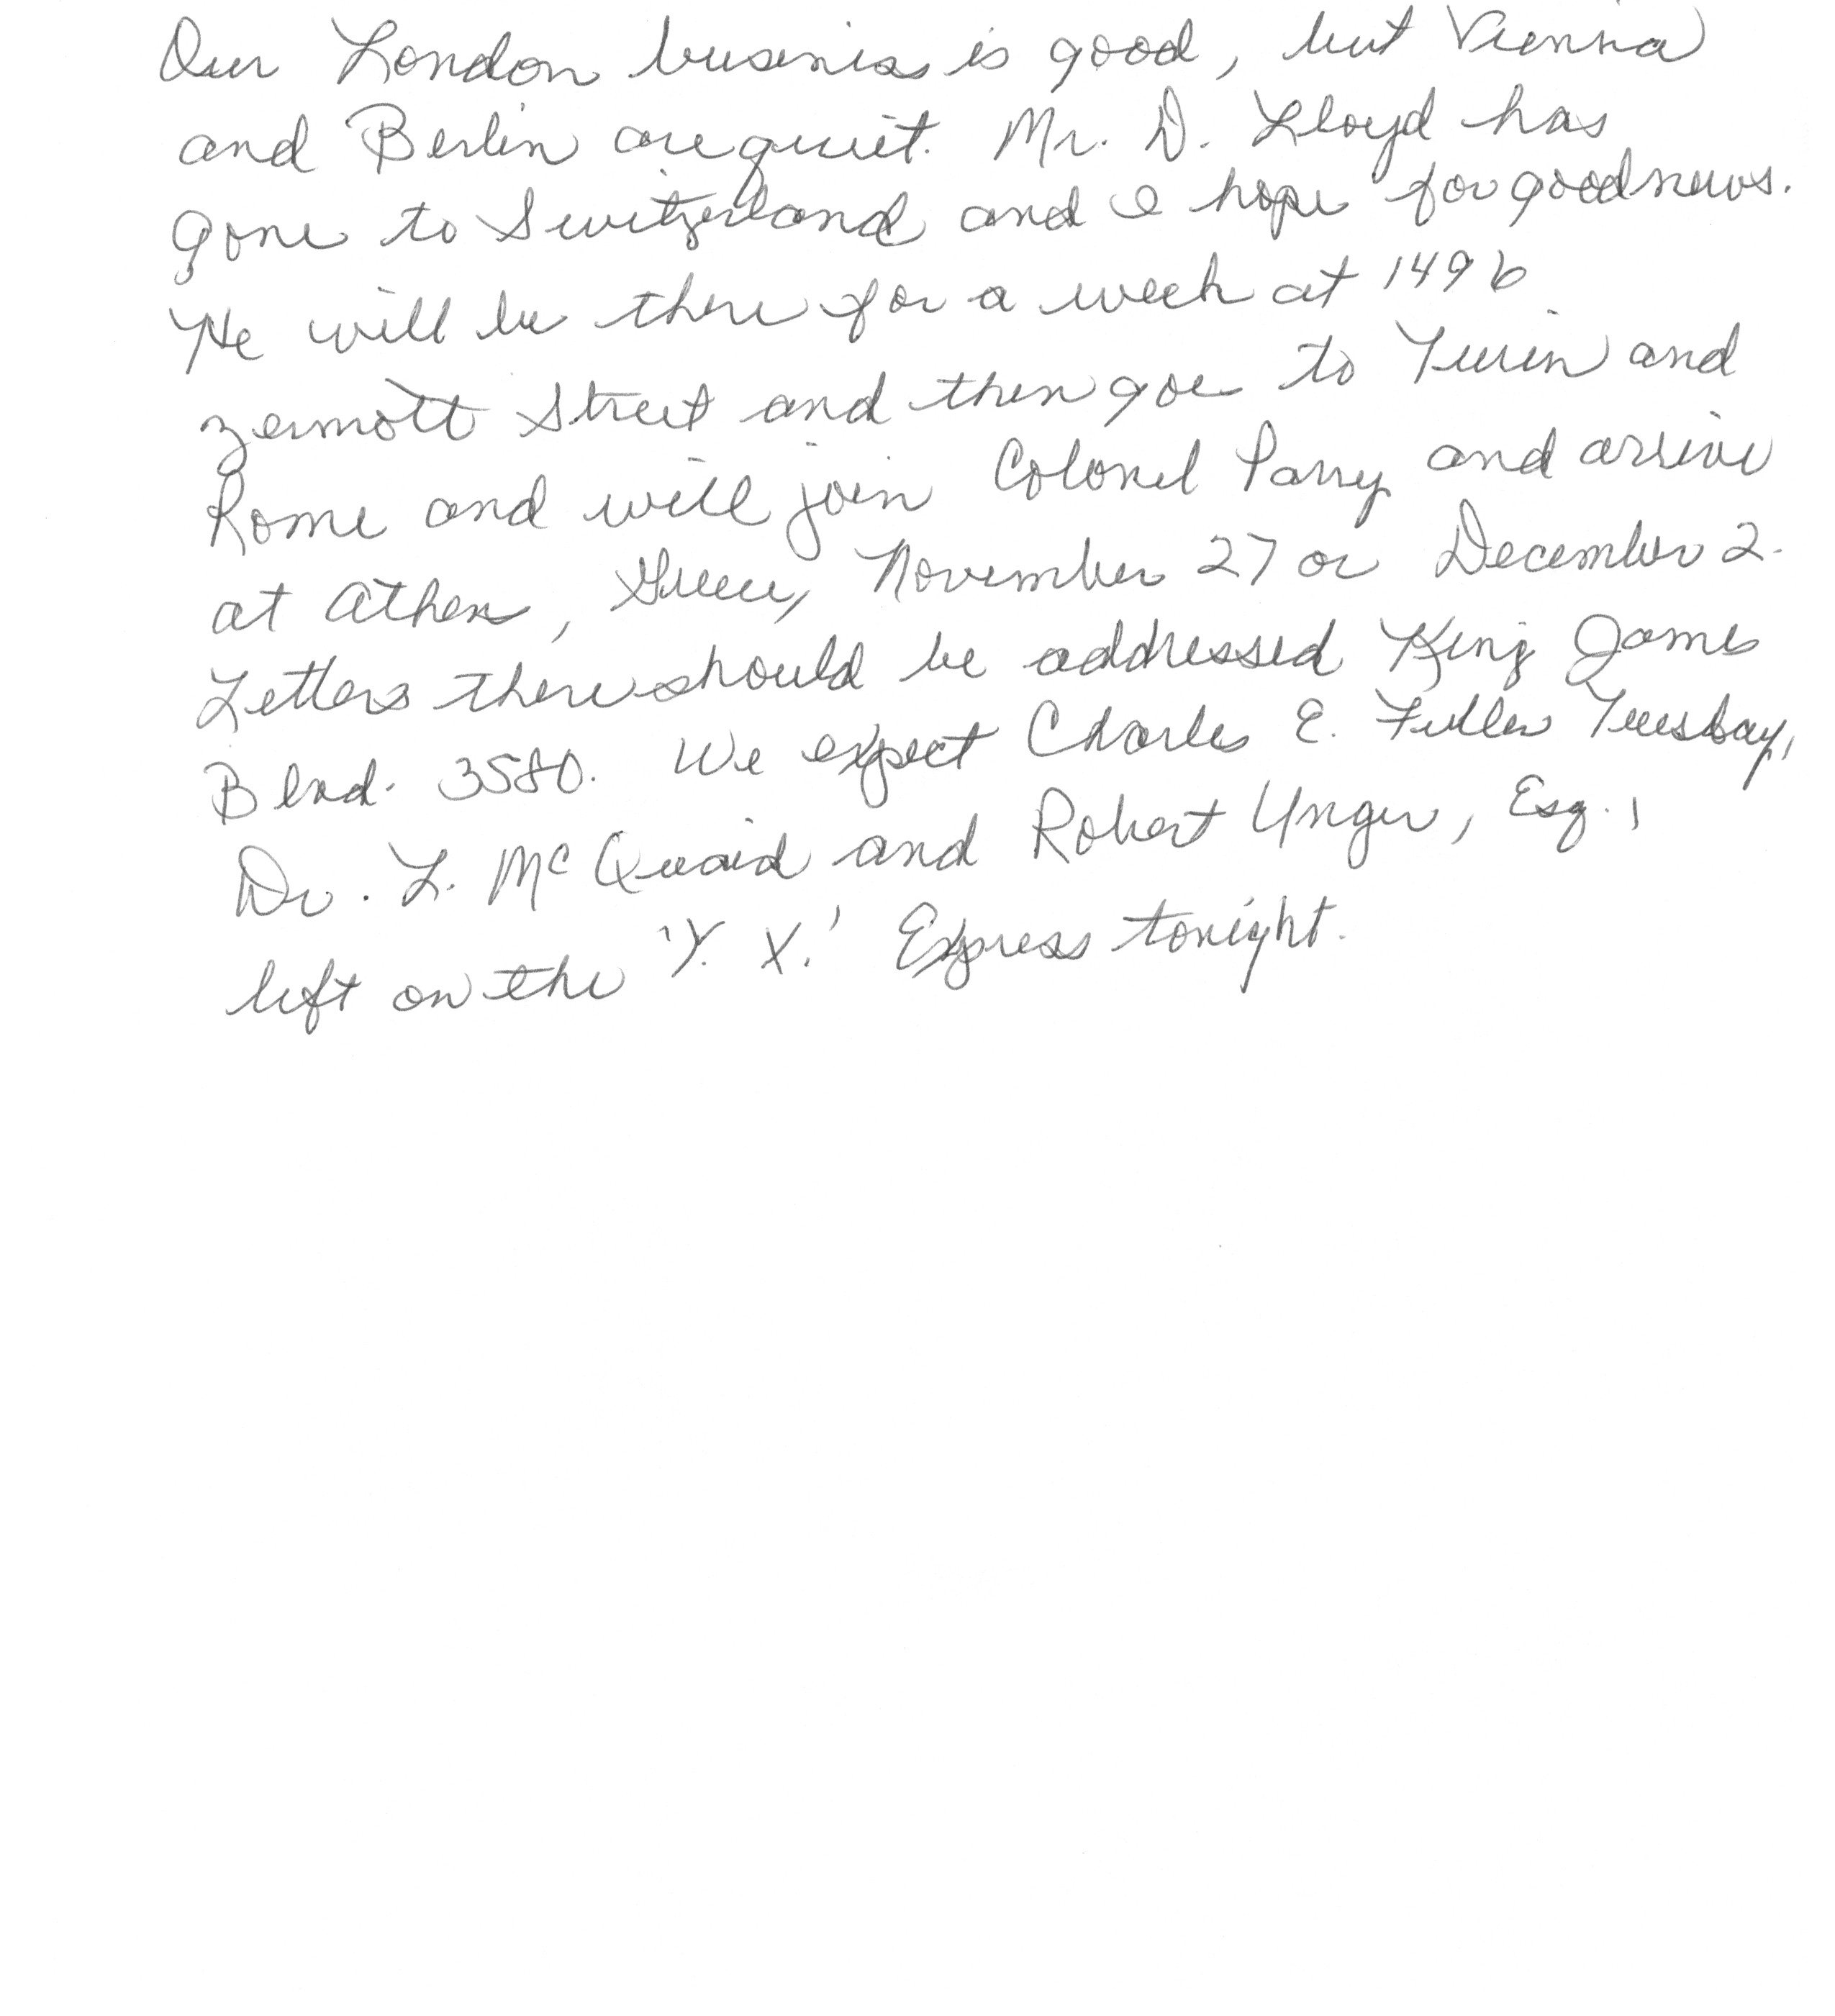 Our London business is good, but Vienna
and Berlin are quiet. Mr. D. Lloyd has
gone to Switzerland and I hope for good news.
He will be there for a week at 1496
Zermott Street and then goe to Turin and
Rome and will join Colonel Parry and arrive
at Athens, Greece, November 27 or December 2.
Letters there should be addressed King James
Blvd. 3580. We expect Charles E. Fuller Tuesday,
Dr. L. McQuaid and Robert Unger, Esq.,
left on the 'Y. X.' Express tonight.